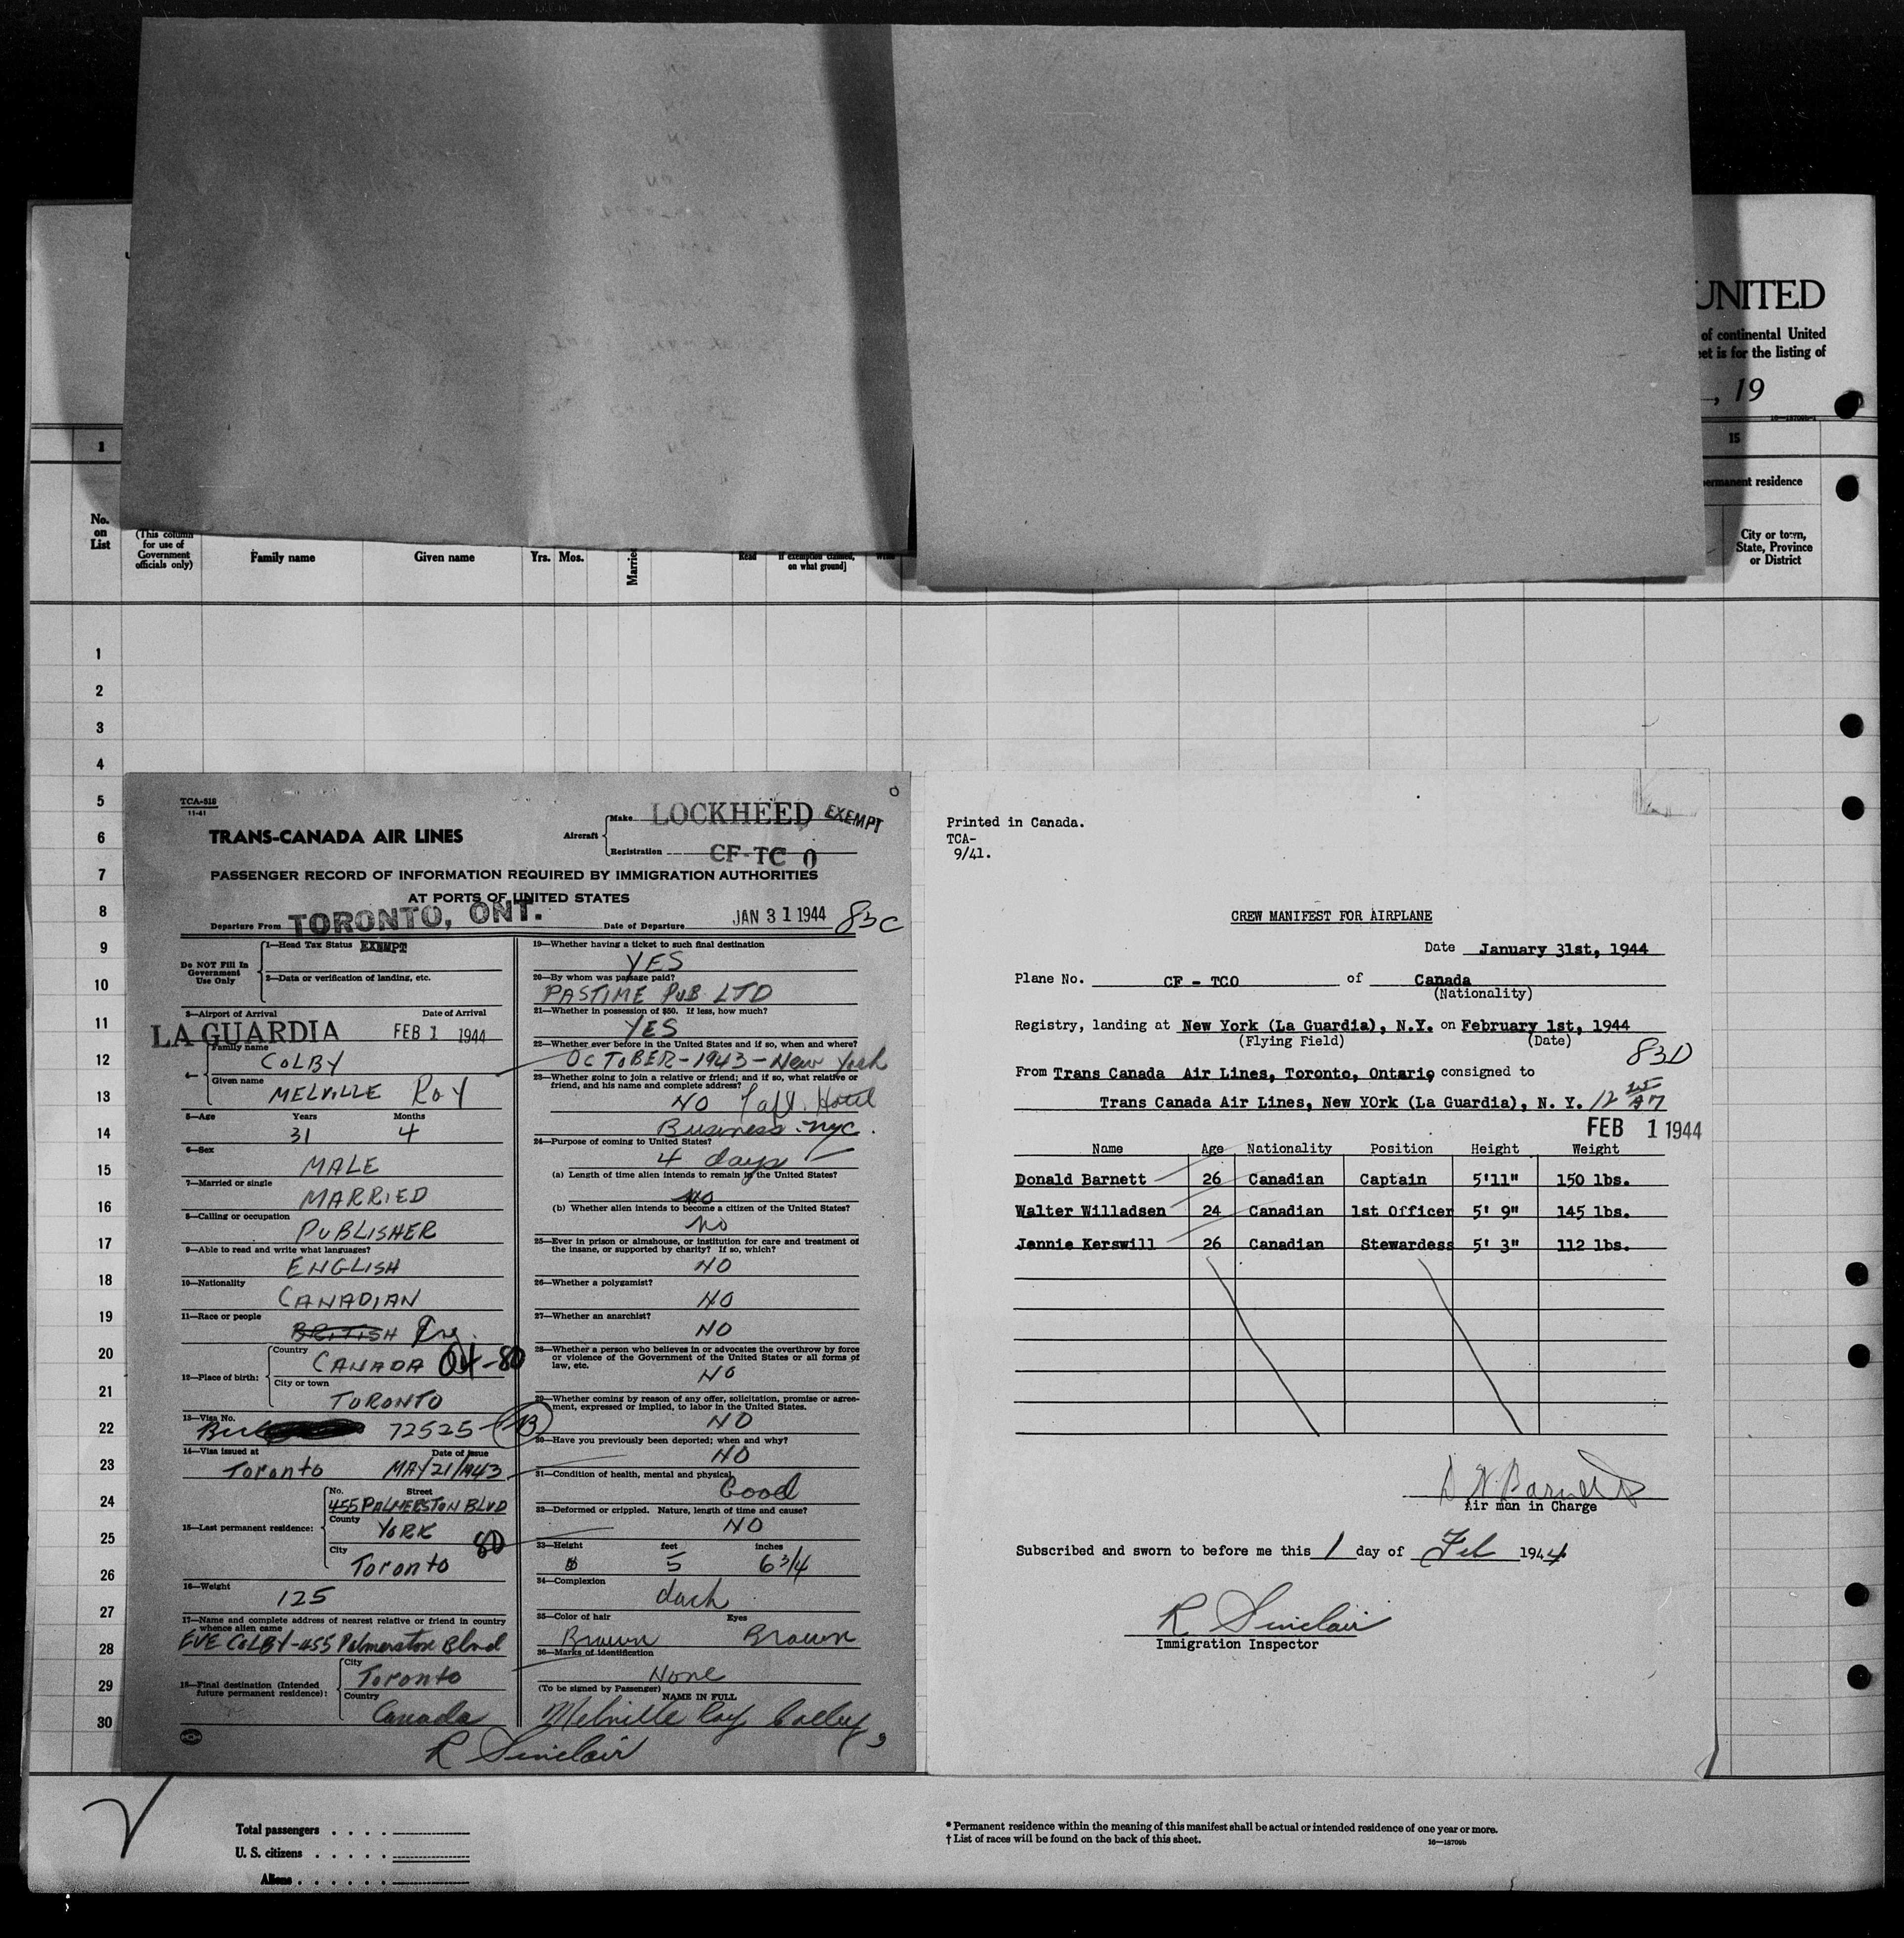 UNITED
of continental United
et is for the listing of
, 19
1
15
permanent residence
No.
on
List
(This column
for use of
Government
officials only)
Family name
Given name
Yrs. Mos.
Read
If exemption claimed,
on what ground]
City or town,
State, Province
or District
1
2
3
4
5
6
7
8
9
10
11
12
13
14
15
16
17
18
19
20
21
22
23
24
25
26
27
28
29
30
TCA-518
11-41
TRANS-CANADA AIR LINES
Aircraft
Make LOCKHEED EXEMPT
Registration CF-TC O
PASSENGER RECORD OF INFORMATION REQUIRED BY IMMIGRATION AUTHORITIES
AT PORTS OF UNITED STATES
Departure From TORONTO, ONT. Date of Departure JAN 31 1944 83C
Do NOT Fill In
Government
Use Only
1—Head Tax Status EXEMPT
2—Data or verification of landing, etc.
3—Airport of Arrival Date of Arrival
LA GUARDIA FEB 1 1944
4—
Family name
COLBY
Given name
MELVILLE Roy
5—Age Years Months
31 4
6—Sex
MALE
7—Married or single
MARRIED
8—Calling or occupation
PUBLISHER
9—Able to read and write what languages?
ENGLISH
10—Nationality
CANADIAN
11—Race or people
BRITISH
12—Place of birth:
Country
CANADA 04-80
City or town
TORONTO
13—Visa No.
72525 B
14—Visa issued at Date of issue
Toronto MAY 21/1943
15—Last permanent residence:
No. Street
455 PALMERSTON BLVD
County
YORK
City 80
Toronto
16—Weight
125
17—Name and complete address of nearest relative or friend in country
whence alien came
EVE COLBY-455 Palmerston Blvd
18—Final destination (Intended
future permanent residence):
City
Toronto
Country
Canada
19—Whether having a ticket to such final destination
YES
20—By whom was passage paid?
PASTIME PUB LTD
21—Whether in possession of $50. If less, how much?
YES
22—Whether ever before in the United States and if so, when and where?
OCTOBER-1943-New York
23—Whether going to join a relative or friend; and if so, what relative or
friend, and his name and complete address?
NO Taft Hotel
Business nyc.
24—Purpose of coming to United States?
4 days
(a) Length of time alien intends to remain in the United States?
NO
(b) Whether alien intends to become a citizen of the United States?
No
25—Ever in prison or almshouse, or institution for care and treatment of
the insane, or supported by charity? If so, which?
NO
26—Whether a polygamist?
NO
27—Whether an anarchist?
NO
28—Whether a person who believes in or advocates the overthrow by force
or violence of the Government of the United States or all forms of
law, etc.
NO
29—Whether coming by reason of any offer, solicitation, promise or agree-
ment, expressed or implied, to labor in the United States.
NO
30—Have you previously been deported; when and why?
NO
31—Condition of health, mental and physical
Good
32—Deformed or crippled. Nature, length of time and cause?
NO
33—Height feet inches
5 6 3/4
34—Complexion
dark
35—Color of hair Eyes
Brown Brown
36—Marks of identification
None
(To be signed by Passenger) NAME IN FULL
Melville Roy Colby
R Sinclair
Printed in Canada.
TCA-
9/41.
CREW MANIFEST FOR AIRPLANE
Date January 31st, 1944
Plane No. CF - TCO of Canada
(Nationality)
Registry, landing at New York (La Guardia), N.Y. on February 1st, 1944
(Flying Field) (Date)
83D
From Trans Canada Air Lines, Toronto, Ontario consigned to
Trans Canada Air Lines, New YOrk (La Guardia), N. Y.
FEB 1 1944
Name Age Nationality Position Height Weight
Donald Barnett 26 Canadian Captain 5'11" 150 lbs.
Walter Willadsen 24 Canadian 1st Officer 5' 9" 145 lbs.
Jennie Kerswill 26 Canadian Stewardess 5' 3" 112 lbs.
D N Barnett
Air man in Charge
Subscribed and sworn to before me this 1 day of Feb 1944
R Sinclair
Immigration Inspector
Total passengers . . . .
U. S. citizens . . . . .
Aliens . . . . . .
* Permanent residence within the meaning of this manifest shall be actual or intended residence of one year or more.
† List of races will be found on the back of this sheet.
16—18709b